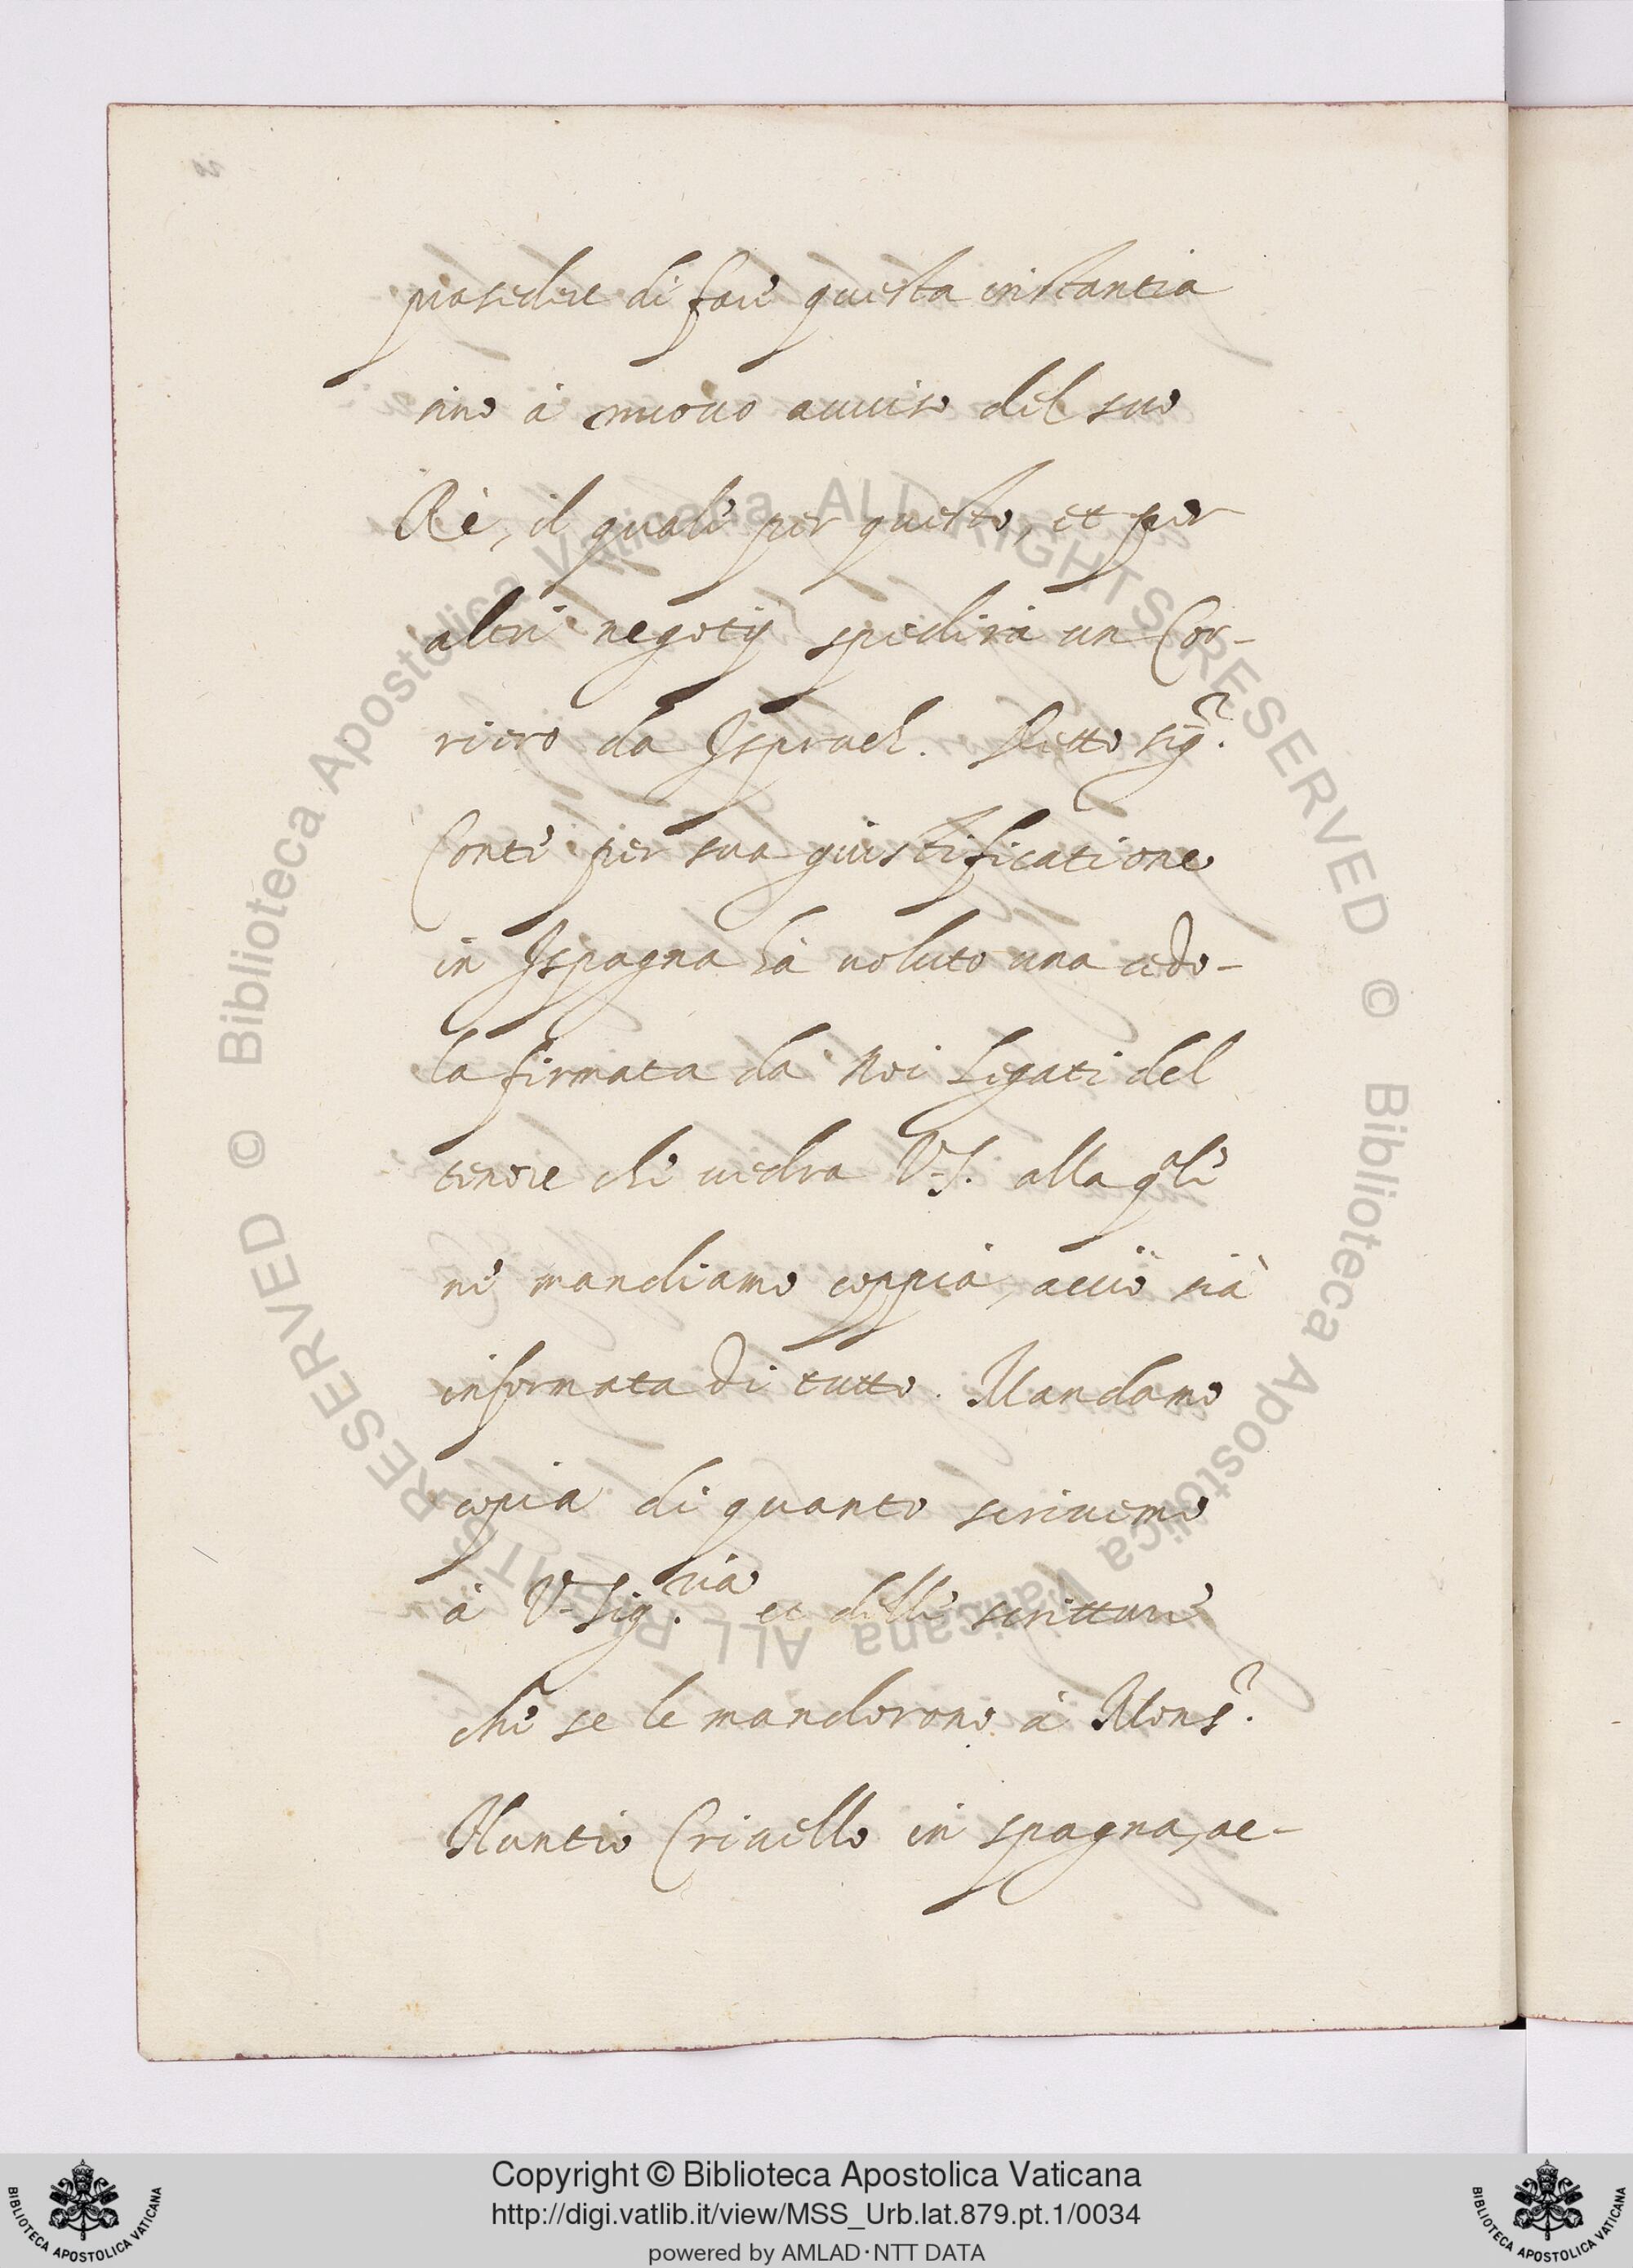 prosedere di fare questa instantia
sino à nuouo auuiso del suo
Rè, il quale per questo, et per
altri negotij spedirà un Cor-
riero da Jspruch. Detto sig.r
Conte per sua giustificatione
in Jspagna hà uoluto una cedo-
la firmata da Noi Legati del
tenore che uedrà V.S. alla qle
ne mandiamo coppia, acciò sià
informata di tutto. Mandamo
copia di quanto scriuemo
à V. Sig.ria et delle scritture
che se le mandorono à Mons.r
Nuntio Criuello in spagna, ac-
Biblioteca Apostolica Vaticana ALL RIGHTS RESERVED ©
Biblioteca Apostolica Vaticana ALL RIGHTS RESERVED ©
Copyright © Biblioteca Apostolica Vaticana
http://digi.vatlib.it/view/MSS_Urb.lat.879.pt.1/0034
powered by AMLAD·NTT DATA
BIBLIOTECA APOSTOLICA VATICANA
BIBLIOTECA APOSTOLICA VATICANA